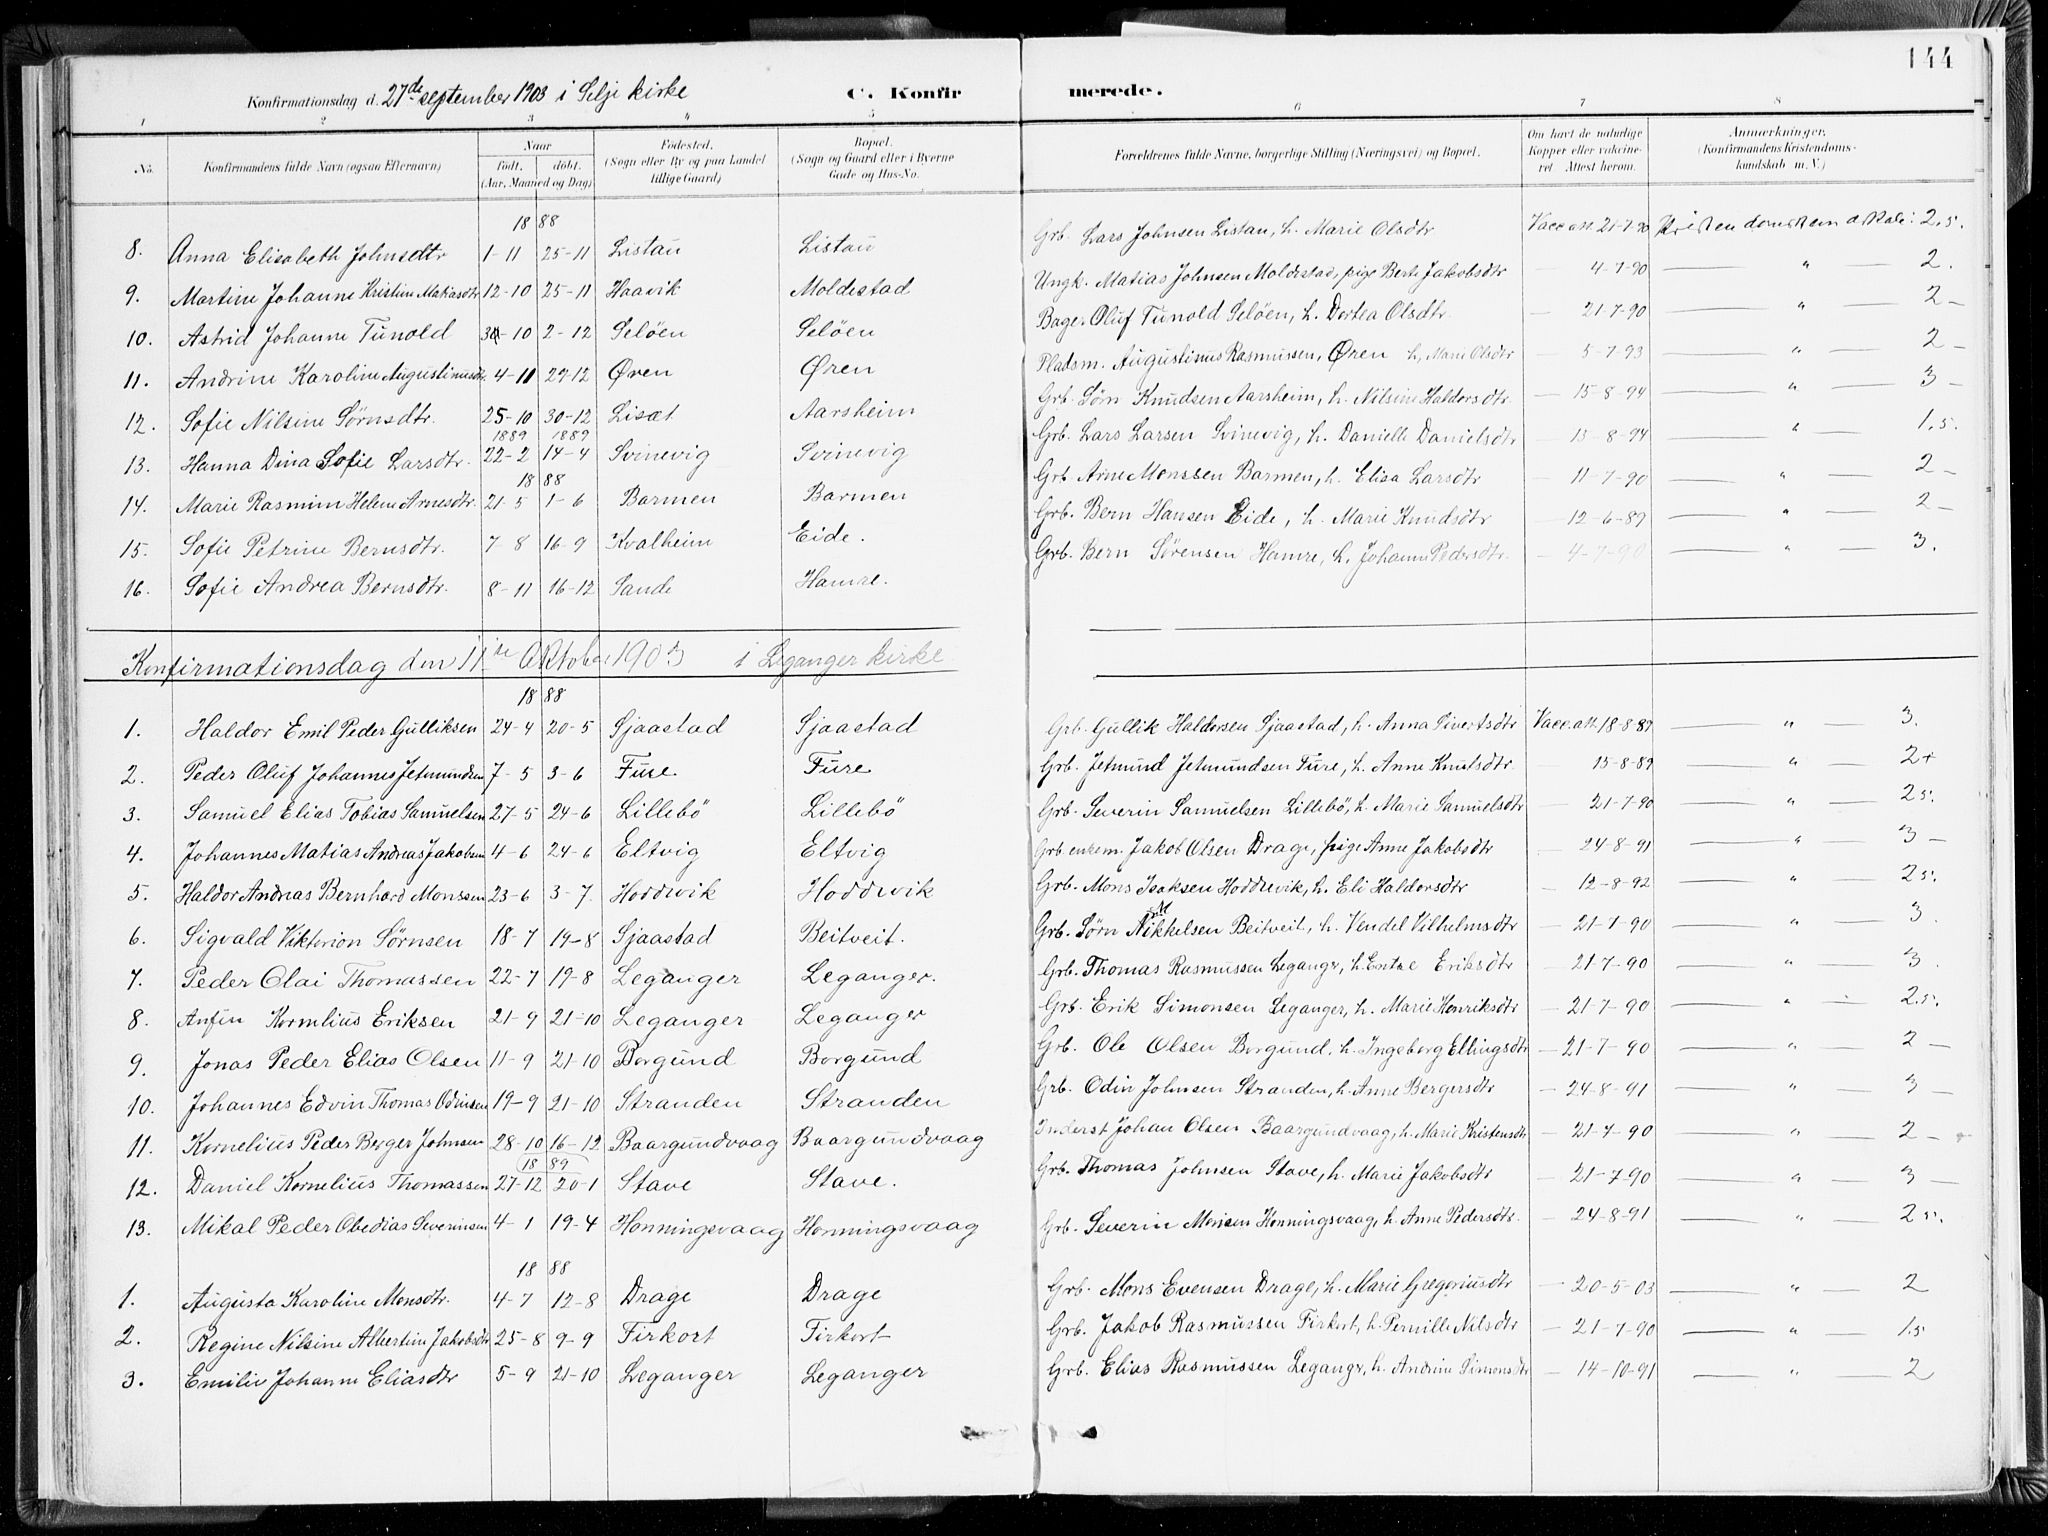 144
Konfirmationsdag d. 27de september 1903 i Selje kirke C. Konfir merede.
1 2 3 4 5 6 7 8
No. Konfirmandens fulde Navn (ogsaa Efternavn) Naar født. døbt. (Aar, Maaned og Dag) Fødested. (Sogn eller By og paa Landet tillige Gaard) Bopæl. (Sogn og Gaard eller i Byerne Gade og Hus-No. Forældrenes fulde Navne, borgerlige Stilling (Næringsvei) og Bopæl. Om havt de naturlige Kopper eller vakcineret. Attest herom. Anmærkninger. (Konfirmandens Kristendomskundskab m. V.)
18 88
8. Anna Elisabeth Johnsdtr 1-11 25-11 Listau Listau Grb. Lars Johnsen Listau, h. Marie Olsdtr Vacc.att. 21-7-90 2.5.
9. Martine Johanne Kristine Matiasdtr 12-10 25-11 Haavik Moldestad Ungk. Matias Johnsen Moldestad, pige Berte Jakobsdtr — 4-7-90 — " — 2.
10. Astrid Johanne Tunold 30-10 2-12 Seløen Seløen Bager Oluf Tunold Seløen, h. Dortea Olsdtr. — 21-7-90 — " — 2 —
11. Andrine Karoline Augustinusdtr. 4-11 29-12 Øren Øren Pladsm. Augustinus Rasmussen, Øren h. Marie Olsdtr — 5-7-93 — " — 2 —
12. Sofie Nilsine Sørnsdtr. 25-10 30-12 Liset Aarsheim Grb. Sørn Knudsen Aarsheim, h. Nilsine Haldorsdtr — 15-8-94 — " — 3 —
1889 1889
13. Hanna Dina Sofie Larsdtr. 22-2 14-4 Svinevig Svinevig Grb. Lars Larsen Svinevig, h. Danielle Danielsdtr — 13-8-94 — " — 1.5.
18 88
14. Marie Rasmine Helene Arnesdtr. 21-5 1-6 Barmen Barmen Grb. Arne Monssen Barmen, h. Elisa Larsdtr — 11-7-90 — " — 2 —
15. Sofie Petrine Bernsdtr. 7-8 16-9 Kvalheim Eide. Grb. Bern Hansen Eide, h. Marie Knudsdtr — 12-6-89 — " — 2 —
16. Sofie Andrea Bernsdtr. 8-11 16-12 Sande Hamre. Grb. Bern Sørensen Hamre, h. Johanne Pedersdtr. — 4-7-90 — " — 3.
Konfirmationsdag den 11te Oktober 1903 i Leganger kirke
18 88
1. Haldor Emil Peder Gulliksen 24-4 20-5 Sjaastad Sjaastad Grb. Gullik Haldorsen Sjaastad, h. Anna Sivertsdtr Vacc.att. 18-8-89 — " — 3.
2. Peder Oluf Johannes Jetmundsen 7-5 3-6 Fure Fure Grb. Jetmund Jetmundsen Fure, h. Anne Knutsdtr — 15-8-89 — " — 2+
3. Samuel Elias Tobias Samuelsen 27-5 24-6 Lillebö Lillebö Grb. Severin Samuelsen Lillebö, h. Marie Samuelsdtr — 21-7-90 — " — 25.
4. Johannes Matias Andreas Jakobsen 4-6 24-6 Eltvig Eltvig Grb. enkem. Jakob Olsen Drage, pige Anne Jakobsdtr — 24-8-91 — " — 3 —
5. Haldor Andreas Bernhard Monssen 23-6 3-7. Hoddevik Hoddevik Grb. Mons Isaksen Hoddevik, h. Eli Haldorsdtr — 12-8-92 — " — 25.
6. Sigvald Viktorion Sørnsen 18-7 19-8 Sjaastad Beitveit. Grb. Sørn Mikkelsen Beitveit, h. Vendel Vilhelmsdtr — 21-7-90 — " — 3.
7. Peder Olai Thomassen 22-7 19-8 Leganger Leganger. Grb. Thomas Rasmussen Leganger, h. Entse Eriksdtr — 21-7-90 — " — 3.
8. Anfin Kornelius Eriksen 21-9 21-10 Leganger Leganger Grb. Erik Simonsen Leganger, h. Marie Henriksdtr — 21-7-90 — " — 2.5.
9. Jonas Peder Elias Olsen 11-9 21-10 Borgund Borgund Grb. Ole Olsen Borgund, h. Ingeborg Ellingsdtr — 21-7-90 — " — 2 —
10. Johannes Edvin Thomas Odinsen 19-9 21-10 Stranden Stranden Grb. Odin Johnsen Stranden, h. Anne Bergersdtr — 24-8-91 — " — 3
11. Kornelius Peder Berger Johnsen 28-10 16-12 Baargundvaag Baargundvaag Inderst Johan Olsen Baargundvaag, h. Marie Kristensdtr — 21-7-90 — " — 2 —
18 89
12. Daniel Kornelius Thomassen 27-12 20-1 Stave Stave. Grb. Thomas Johnsen Stave, h. Marie Jakobsdtr — 21-7-90 — " — 3 —
13. Mikal Peder Obedias Severinsen 4-1 19-4 Honningsvaag Honningsvaag Grb. Severin Monsen Honningsvaag, h. Anne Pedersdtr. — 24-8-91 — " — 25.
18 88
1. Augusta Karoline Monsdtr. 4-7 12-8 Drage Drage Grb. Mons Evensen Drage, h. Marie Gregoriusdtr — 20-5-03 — " — 2
2. Regine Nilsine Albertine Jakobsdtr 25-8 9-9 Firkort Firkort Grb. Jakob Rasmussen Firkort, h. Pernille Nilsdtr — 21-7-90 — " — 1.5
3. Emilie Johanne Eliasdtr 5-9 21-10 Leganger Leganger Grb. Elias Rasmussen Leganger, h. Andrine Simonsdtr — 14-10-91 — " — 2